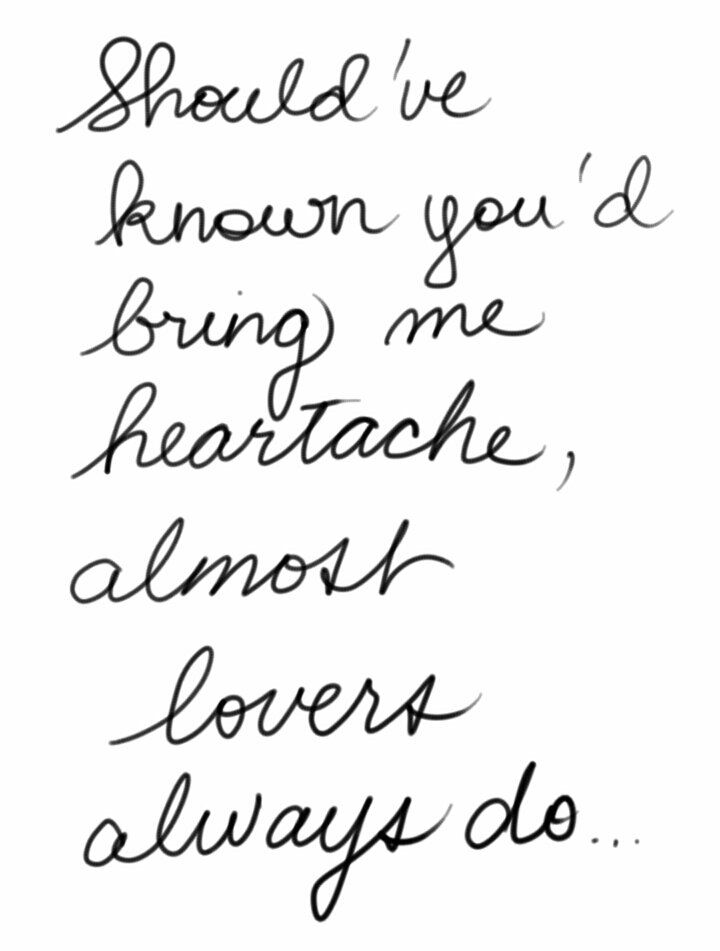 Should've
known you'd
bring me
heartache,
almost
lovers
always do...